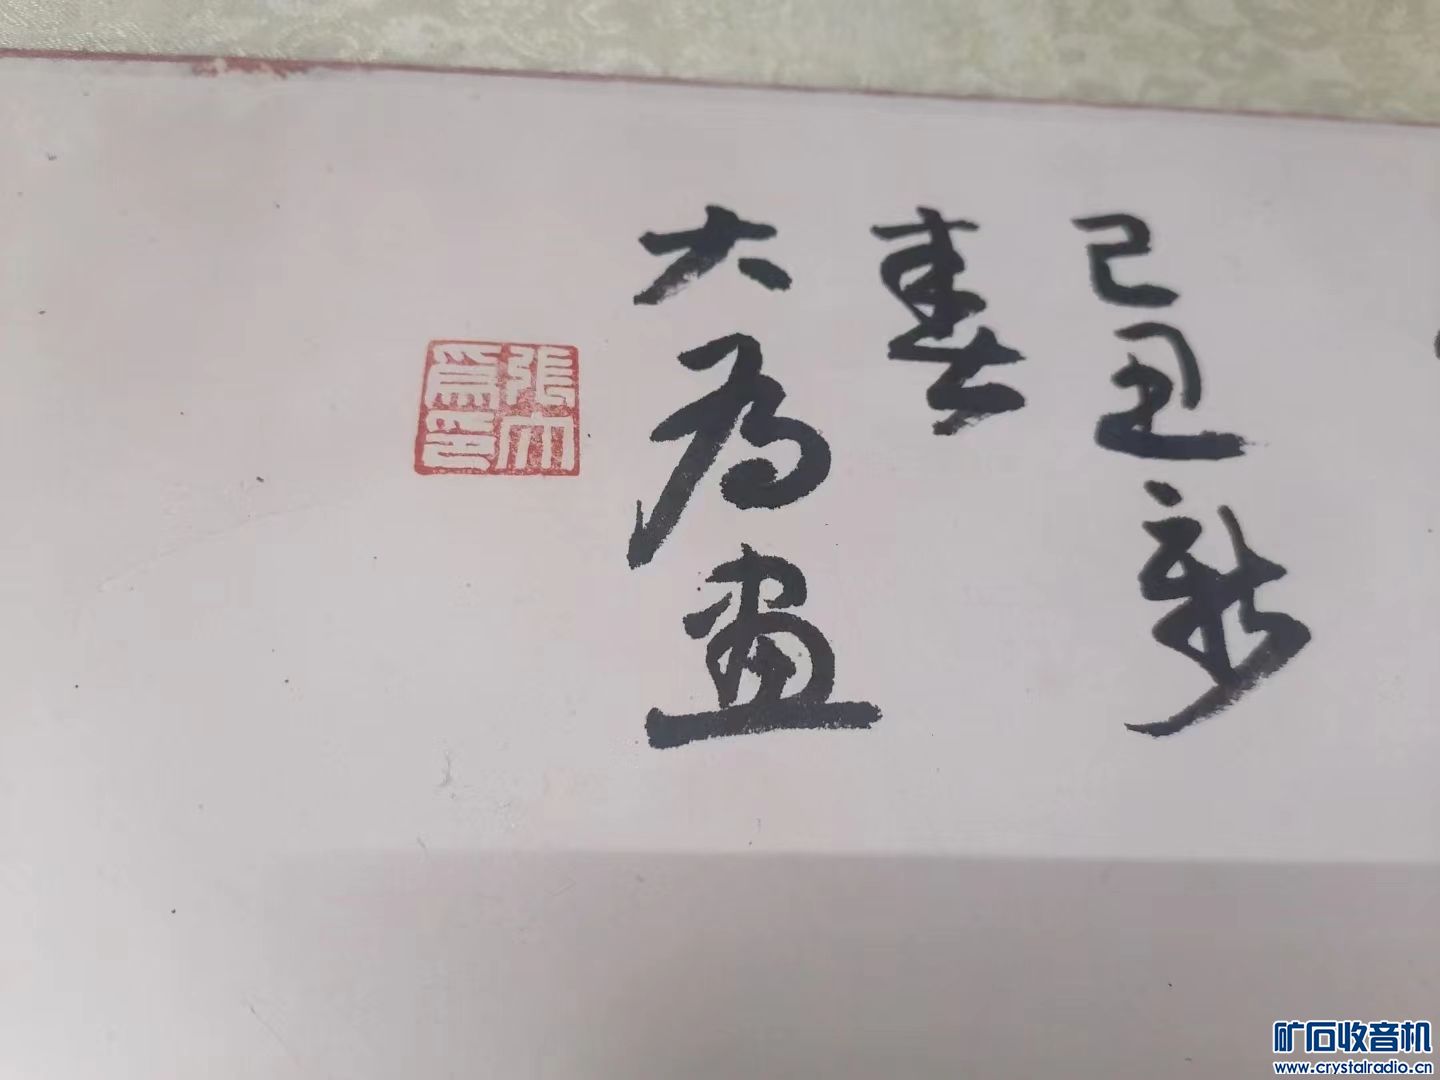 己丑新
春
大為畫
張大
爲印
矿石收音机
www.crystalradio.cn